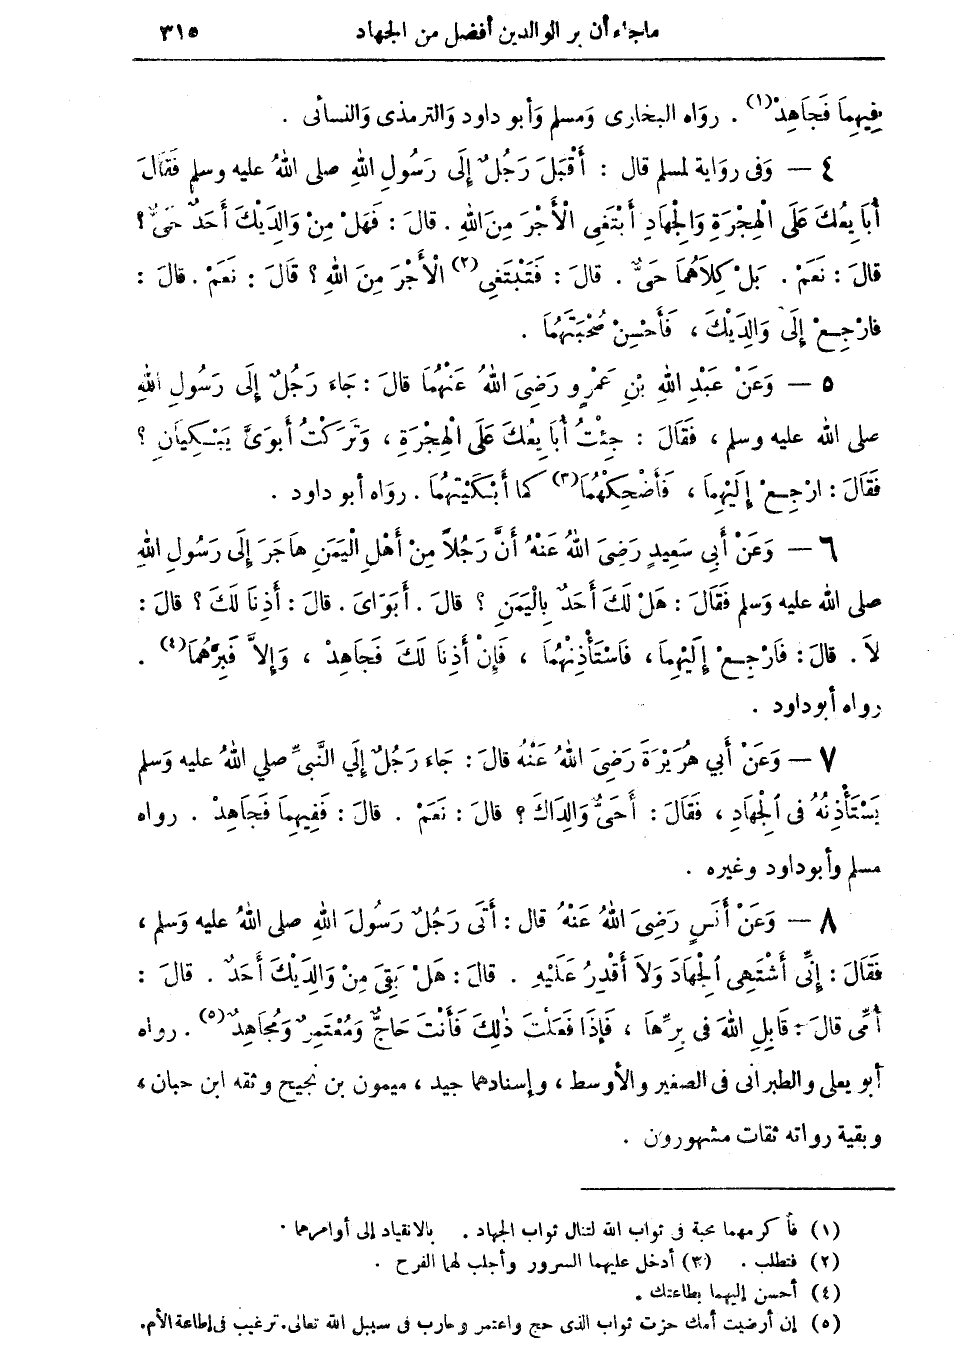 ماجاء أن بر الوالدين أفضل من الجهاد ٣١٥
فِفِيهِمَا فَجَاهِدْ(١) . رواه البخارى ومسلم وأبو داود والترمذى والنسائى .
٤ — وَفى رواية لمسلم قال : أَقْبَلَ رَجُلٌ إِلَى رَسُولِ اللهِ صلى اللهُ عليه وسلم فَقَالَ
أُبَايِعُكَ عَلَى الْهِجْرَةِ وَالْجِهَادِ أَبْتَغِى الْأَجْرَ مِنَ اللهِ . قالَ : فَهَلْ مِنْ وَالِدَيْكَ أَحَدٌ حَىٌّ ؟
قالَ : نَعَمْ . بَلْ كِلَاهُمَا حَىٌّ . قالَ : فَتَبْتَغِى(٢) الْأَجْرَ مِنَ اللهِ ؟ قَالَ : نَعَمْ . قالَ :
فارْجِعْ إِلَى وَالِدَيْكَ ، فَأَحْسِنْ صُحْبَتَهُمَا .
٥ — وَعَنْ عَبْدِ اللهِ بْنِ عَمْرٍو رَضِىَ اللهُ عَنْهُمَا قالَ : جَاءَ رَجُلٌ إِلَى رَسُولِ اللهِ
صلى الله عليه وسلم ، فَقَالَ : جِئْتُ أُبَايِعُكَ عَلَى الْهِجْرَةِ ، وَتَرَكْتُ أَبَوَىَّ يَبْكِيَانِ ؟
فَقَالَ : ارْجِعْ إِلَيْهِمَا ، فَأَضْحِكْهُمَا(٣) كَمَا أَبْكَيْتَهُمَا . رواه أبو داود .
٦ — وَعَنْ أَبِى سَعِيدٍ رَضِىَ اللهُ عَنْهُ أَنَّ رَجُلاً مِنْ أَهْلِ الْيَمَنِ هَاجَرَ إِلَى رَسُولِ اللهِ
صلى الله عليه وَسلم فَقَالَ : هَلْ لَكَ أَحَدٌ بِالْيَمَنِ ؟ قالَ . أَبَوَاىَ . قالَ : أَذِنَا لَكَ ؟ قالَ :
لاَ . قالَ : فَارْجِعْ إِلَيْهِمَا ، فَاسْتَأْذِنْهُمَا ، فَإِنْ أَذِنَا لَكَ فَجَاهِدْ ، وَإِلاَّ فَبِرَّهُمَا(٤) .
رواه أبو داود .
٧ — وَعَنْ أَبِي هُرَيْرَةَ رَضِىَ اللهُ عَنْهُ قالَ : جَاءَ رَجُلٌ إِلَي النَّبِىِّ صلي اللهُ عليه وَسلم
يَسْتَأْذِنُهُ فى الْجِهَادِ ، فَقَالَ : أَحَىٌّ وَالِدَاكَ ؟ قالَ : نَعَمْ . قالَ : فَفِيهِمَا فَجَاهِدْ . رواه
مسلم وأبو داود وغيره .
٨ — وَعَنْ أَنَسٍ رَضِىَ اللهُ عَنْهُ قال : أَتَى رَجُلٌ رَسُولَ اللهِ صلى اللهُ عليه وَسلم ،
فَقَالَ : إِنِّى أَشْتَهِى الْجِهَادَ وَلاَ أَقْدِرُ عَلَيْهِ . قالَ : هَلْ بَقِىَ مِنْ وَالِدَيْكَ أَحَدٌ . قالَ :
أُمِّى قالَ : قَابِلِ اللهَ فى بِرِّهَا ، فَإِذَا فَعَلْتَ ذٰلِكَ فَأَنْتَ حَاجٌّ وَمُعْتَمِرٌ وَمُجَاهِدٌ(٥) . رواه
أبو يعلى والطبرانى فى الصغير والأوسط ، وإسنادهما جيد ، ميمون بن نجيح وثقه ابن حبان ،
وبقية رواته ثقات مشهورون .
(١) فأكرمهما محبة فى ثواب الله لتنال ثواب الجهاد . بالانقياد إلى أوامرهما .
(٢) فتطلب . (٣) أدخل عليهما السرور وأجلب لهما الفرح .
(٤) أحسن إليهما بطاعتك .
(٥) إن أرضيت أمك حزت ثواب الذى حج واعتمر وحارب فى سبيل الله تعالى . ترغيب فى إطاعة الأم .